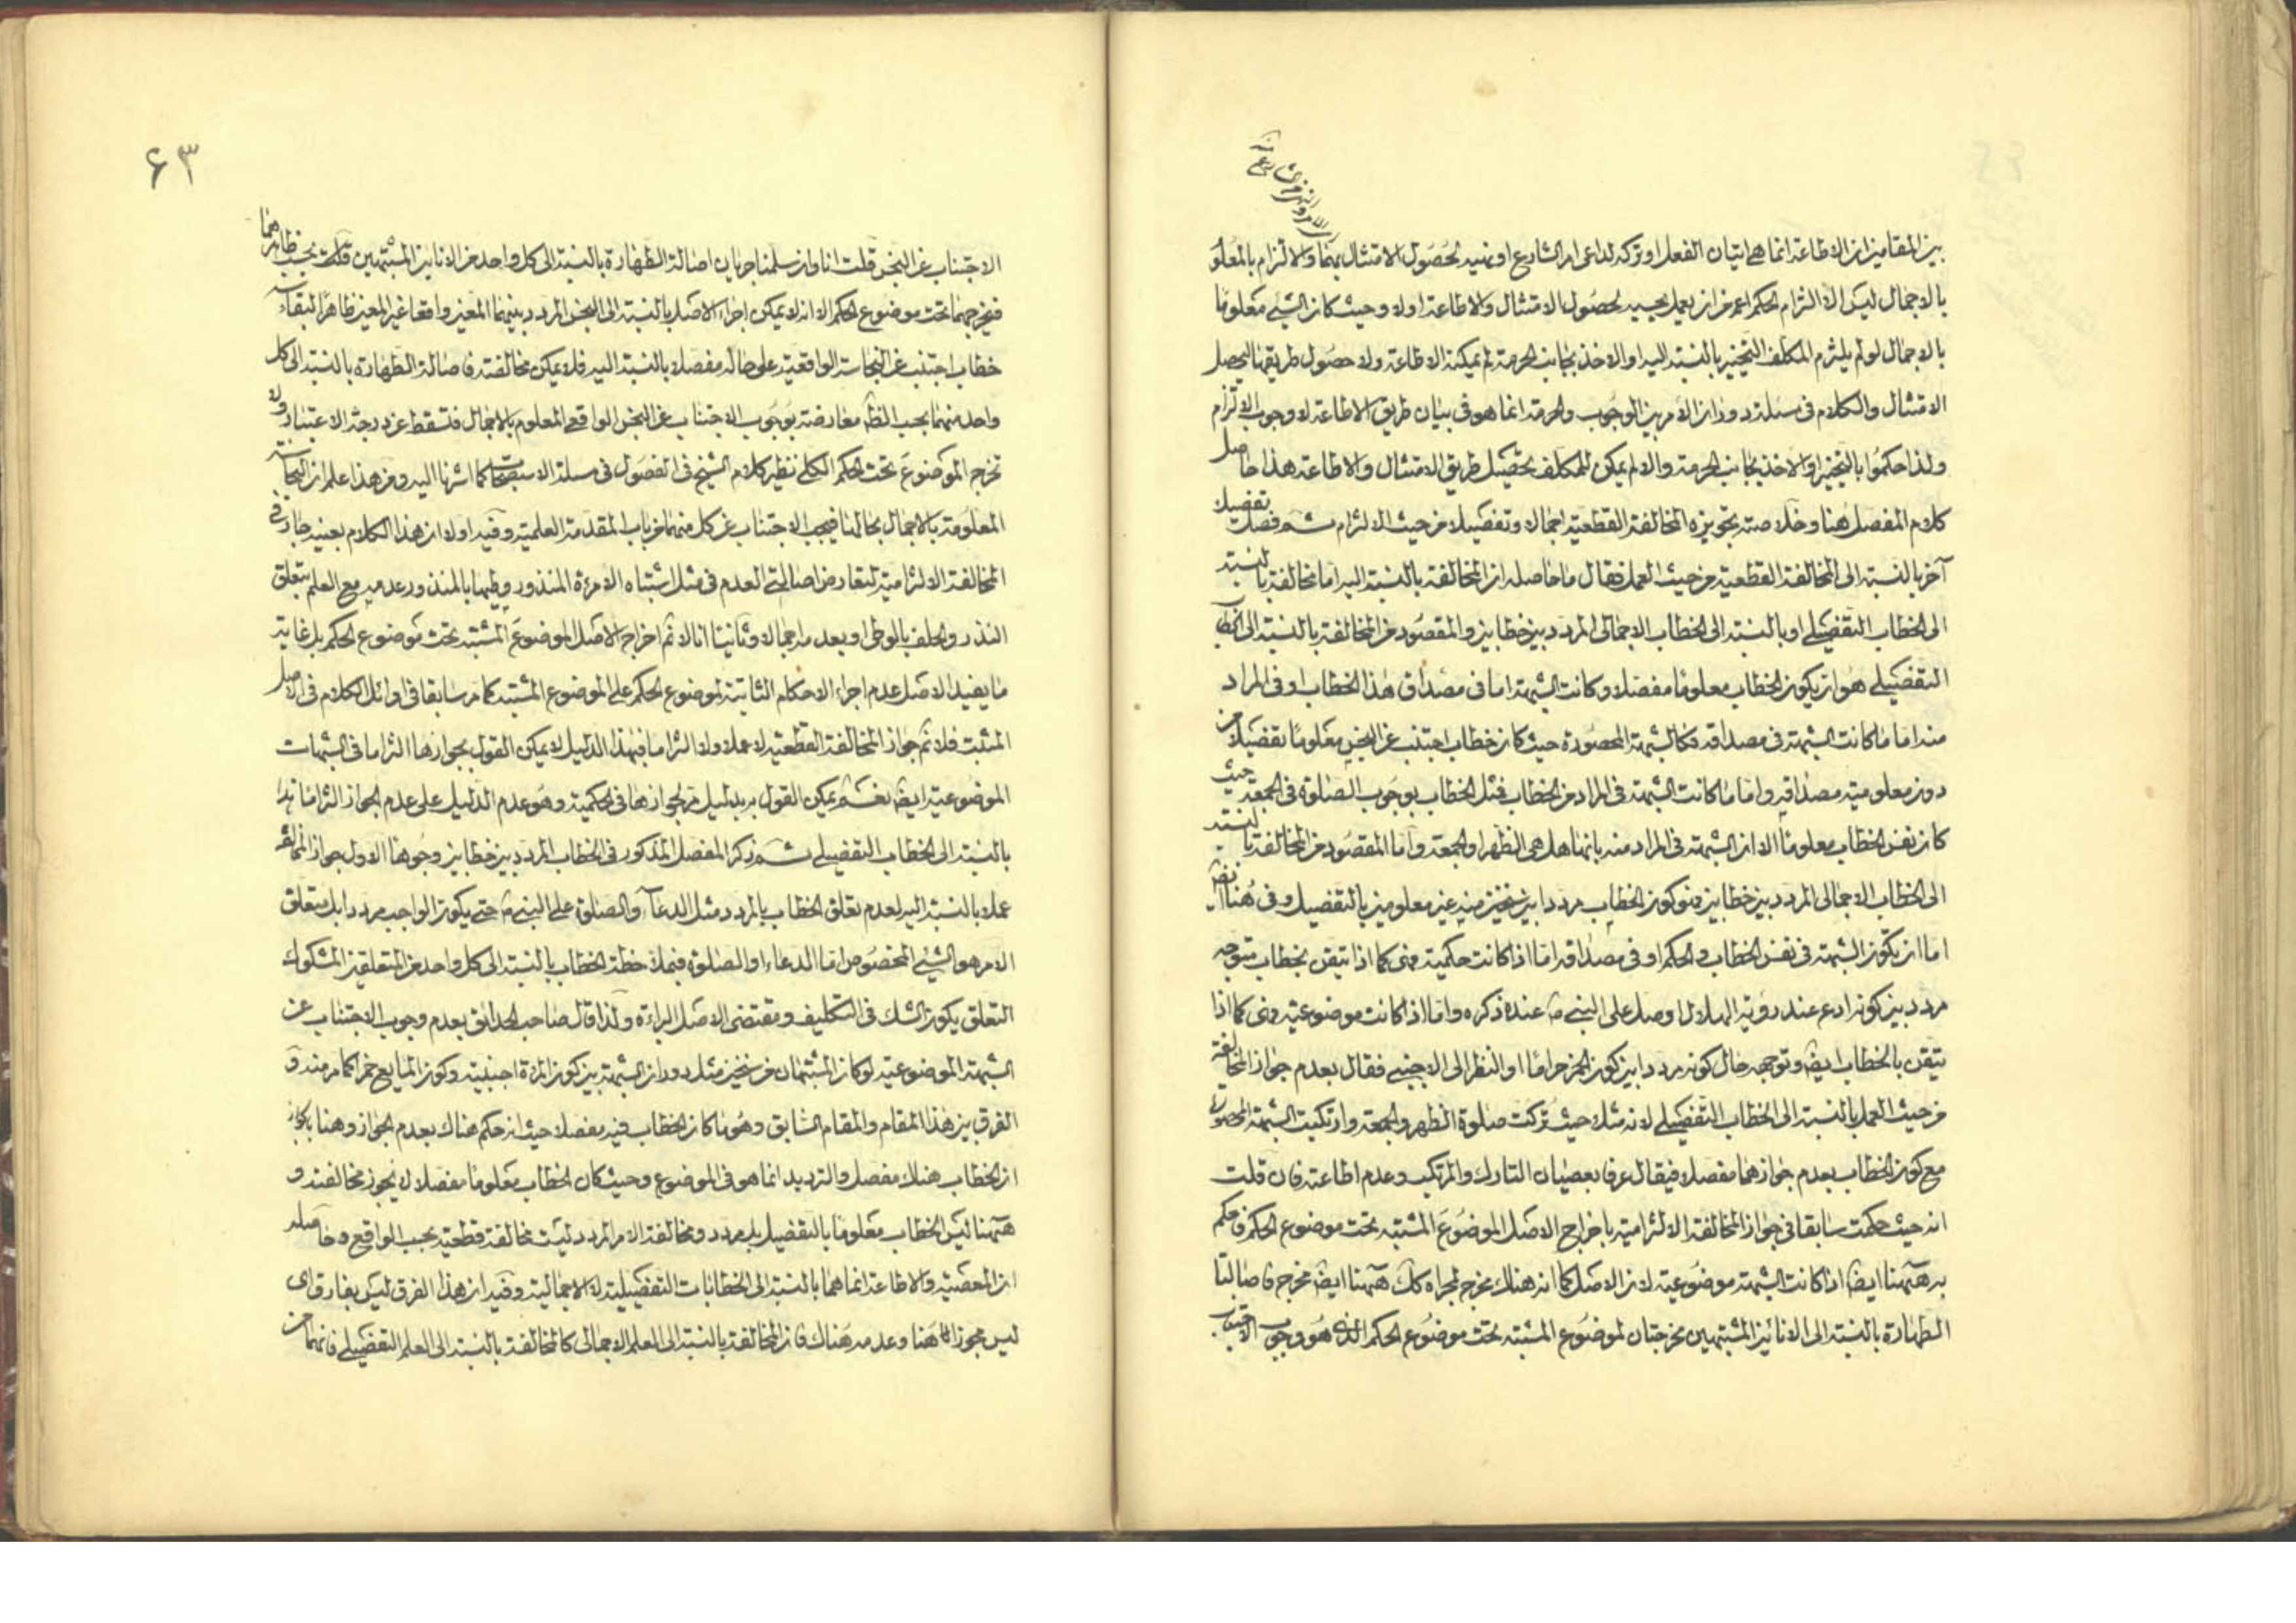 بين المقامين ان الاطاعة انما هى اتيان الفعل او تركه لداعى امر الشارع او نهيه لحصول الامتثال بهما والالتزام بالمعلو
بالاجمال ليس الا التزام الحكم اعم من ان يعمل بحسبه لحصول الامتثال والاطاعة اولا وحيث كان الشئ معلوما
بالاجمال لو لم يلتزم المكلف التخيير بالنسبة اليه او الاخذ بجانب الحرمة لم يمكنه الاطاعة ولا حصول طريقها ليحصل
الامتثال والكلام فى مسئلة دوران الامر بين الوجوب والحرمة انما هو فى بيان طريق الاطاعة لا وجوب الالتزام
ولذا حكموا بالتخيير او الاخذ بجانب الحرمة والا لم يمكن للمكلف تحصيل طريق الامتثال والاطاعة هذا حاصل
كلام المفصل هنا وخلاصته تجويزه المخالفة القطعية اجمالا وتفصيلا من حيث الالتزام ثم فصل تفصيلا
آخر بالنسبة الى المخالفة القطعية من حيث العمل فقال ما حاصله ان المخالفة بالنسبة اليه اما مخالفة بالنسبة
الى الخطاب التفصيلى او بالنسبة الى الخطاب الاجمالى المردد بين خطابين والمقصود من المخالفة بالنسبة الى الخطاب
التفصيلى هو ان يكون الخطاب معلوما مفصلا وكانت الشبهة اما فى مصداق هذا الخطاب او فى المراد
منه اما ما كانت الشبهة فى مصداقه فكالشبهة المحصورة حيث كان خطاب اجتنب عن النجس معلوما تفصيلا من
دون معلومية مصداقه واما ما كانت الشبهة فى المراد من الخطاب فمثل الخطاب بوجوب الصلوة فى الجمعة حيث
كان نفس الخطاب معلوما الا ان الشبهة فى المراد منه بانها هل هى الظهر او الجمعة واما المقصود من المخالفة بالنسبة
الى الخطاب الاجمالى المردد بين خطابين فهو كون الخطاب مرددا بين نحوين غير معلومين بالتفصيل وفى هنا ايض
اما ان يكون الشبهة فى نفس الخطاب والحكم او فى مصداقه اما اذا كانت حكمية فهى كما اذا تيقن بخطاب متوجه
مردد بين كونه ادع عند رؤية الهلال او صل على النبى ص عند ذكره واما اذا كانت موضوعية فهى كما اذا
تيقن بالخطاب ايض وتوجهه حال كونه مرددا بين كون الخمر حراما او النظر الى الاجنبى فقال بعدم جواز المخالفة
من حيث العمل بالنسبة الى الخطاب التفصيلى لانه مثلا حيث تركت صلوة الظهر والجمعة وارتكبت الشبهة المحصورة
مع كون الخطاب بعدم جوازهما مفصلا فيقال عرفا بعصيان التارك والمرتكب وعدم اطاعته فان قلت
انه حيث حكمت سابقا فى جواز المخالفة الالتزامية باخراج الاصل الموضوع المشتبه تحت موضوع الحكم فاحكم
به ههنا ايض اذا كانت الشبهة موضوعية لان الاصل كما انه هناك مخرج لمجراه كك ههنا ايض مخرج فاصالتا
الطهارة بالنسبة الى الانائين المشتبهين مخرجتان لموضوع المشتبه تحت موضوع الحكم الذى هو وجوب الاجتناب
۶۳
الاجتناب عن النجس قلت انا وان سلمنا جريان اصالة الطهارة بالنسبة الى كل واحد من الانائين المشتبهين بحسب ظاهرهما
فيخرجهما تحت موضوع الحكم الا انه لا يمكن اجراء الاصل بالنسبة الى النجس المردد بينهما المعين واقعا غير المعين ظاهرا لبقاء
خطاب اجتنب عن النجاسة الواقعية على حاله مفصلا بالنسبة اليه فلا يمكن مخالفته فاصالة الطهارة بالنسبة الى كل
واحد منهما بحسب الظ معارضة بوجوب الاجتناب عن النجس الواقعى المعلوم بالاجمال فتسقط عن درجة الاعتبار ولا
تخرج الموضوع تحت الحكم الكلى نظير كلام الشيخ فى الفصول فى مسئلة الاستصحاب كما اشرنا اليه ومن هذا علم ان النجاسة
المعلومة بالاجمال بحالها فيجب الاجتناب عن كل منهما من باب المقدمة العلمية وفيه اولا ان هذا الكلام بعينه جار فى
المخالفة الالتزامية لتعارض اصالتى العدم فى مثل اشتباه الامرئة المنذور وطيها بالمنذور عدمه مع العلم بتعلق
النذر والحلف بالوطى او بعدمه اجمالا وثانيا انا لا نم اخراج الاصل الموضوع المشتبه تحت موضوع الحكم بل غاية
ما يفيد الاصل عدم اجراء الاحكام الثابتة لموضوع الحكم على الموضوع المشتبه كما مر سابقا فى اوائل الكلام فى الاصل
المثبت فلا نم جواز المخالفة القطعية لا عملا ولا التزاما فبهذا الدليل لا يمكن القول بجوازها التزاما فى الشبهات
الموضوعية ايض نعم يمكن القول به بدليل من لجوازها فى الحكمية وهو عدم الدليل على عدم الجواز التزاما هذا
بالنسبة الى الخطاب التفصيلى ثم ذكر المفصل المذكور فى الخطاب المردد بين خطابين وجوها الاول جواز المخالفة
عملا بالنسبة اليه لعدم تعلق الخطاب بالمردد مثل الدعاء والصلوة على النبى ص حتى يكون الواجب مرددا بل متعلق
الامر هو الشئ المخصوص اما الدعاء او الصلوة فبملاحظة الخطاب بالنسبة الى كل واحد من المتعلقين المشكوك
التعلق يكون الشك فى التكليف ومقتضى الاصل البراءة ولذا قال صاحب الحدائق بعدم وجوب الاجتناب عن
الشبهة الموضوعية لو كان المشتبهان من نحوين مثل دوران الشبهة بين كون المرئة اجنبية وكون المايع خمرا كما مر منه و
الفرق بين هذا المقام والمقام السابق وهو ما كان الخطاب فيه مفصلا حيث انه حكم هناك بعدم الجواز وهنا بالجواز
ان الخطاب هناك مفصل والترديد انما هو فى الموضوع وحيث كان الخطاب معلوما مفصلا لا يجوز مخالفته و
ههنا ليس الخطاب معلوما بالتفصيل بل مردد ومخالفة الامر المردد ليست مخالفة قطعية بحسب الواقع وحاصله
ان المعصية والاطاعة انما هما بالنسبة الى الخطابات التفصيلية لا الاجمالية وفيه ان هذا الفرق ليس بفارق اى
ليس مجوزا هنا وعدمه هناك فان المخالفة بالنسبة الى العلم الاجمالى كالمخالفة بالنسبة الى العلم التفصيلى فانهما من